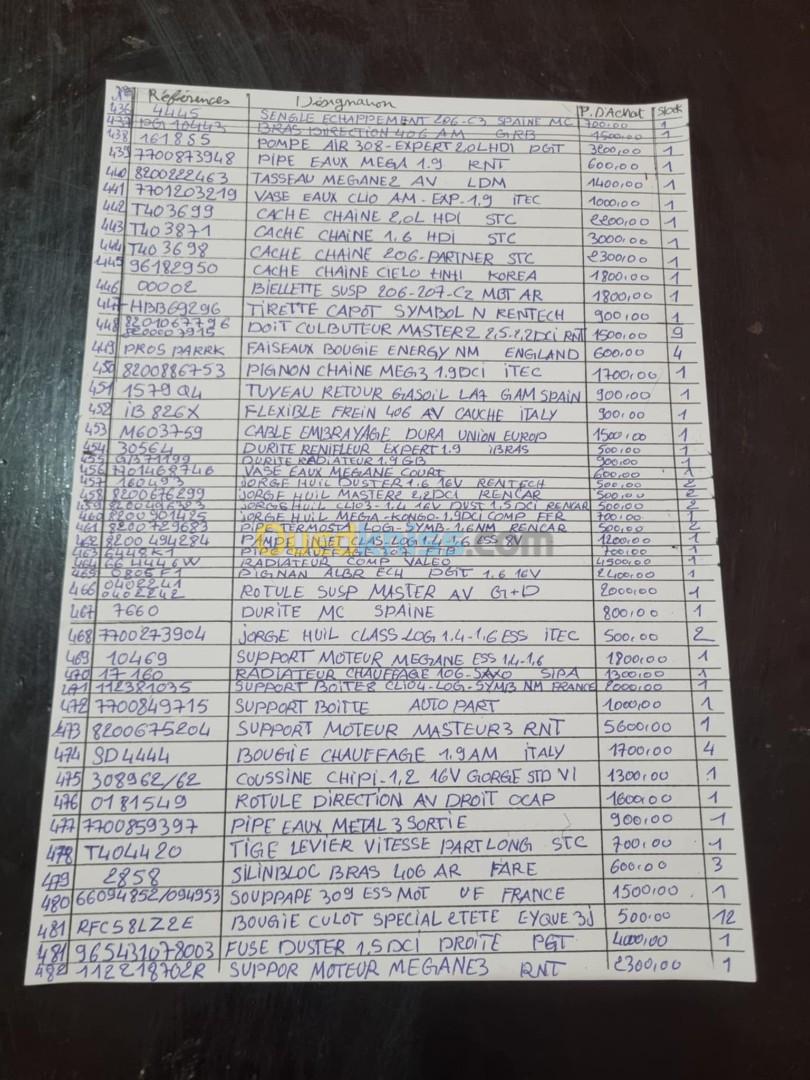 N° Références Désignation P. D'Achat Stock
436 4445 SENGLE ECHAPPEMENT 206-C3 SPAINE MC 700,00 1
437 BRAS DIRECTION 406 AM GRB 1500,00 1
438 161855 POMPE AIR 308-EXPERT 2.0L HDI PGT 3200,00 1
439 7700873948 PIPE EAUX MEGA 1.9 RNT 600,00 1
440 8200222463 TASSEAU MEGANE2 AV LDM 1400,00 1
441 7701203219 VASE EAUX CLIO AM-EXP.1.9 ITEC 1000,00 1
442 T403699 CACHE CHAINE 2,0L HDI STC 2200,00 1
443 T403871 CACHE CHAINE 1.6 HDI STC 3000,00 1
444 T403698 CACHE CHAINE 206-PARTNER STC 2300,00 1
445 96182950 CACHE CHAINE CIELO KOREA 1800,00 1
446 00002 BIELLETTE SUSP 206-207-C2 MGT AR 1800,00 1
447 HBB69296 TIRETTE CAPOT SYMBOL N RENTECH 900,00 1
448 8201067796 DOIT CULBUTEUR MASTER2 2,5-2,2DCI RNT 1500,00 9
7915
449 PROS PARRK FAISEAUX BOUGIE ENERGY NM ENGLAND 600,00 4
450 8200886753 PIGNON CHAINE MEG3 1.9DCI ITEC 1700,00 1
451 1579 Q4 TUYEAU RETOUR GASOIL LA7 GAM SPAIN 900,00 1
452 iB 826X FLEXIBLE FREIN 406 AV CAUCHE ITALY 900,00 1
453 M603759 CABLE EMBRAYAGE DURA UNION EUROP 1500,00 1
454 30564 DURITE RENIFLEUR EXPERT 1.9 IBRAS 500,00 1
455 GB71199 DURITE RADIATEUR 1.9 GB 900,00 1
456 7701468746 VASE EAUX MEGANE COURT 600,00 1
457 160493 JORGE HUIL DUSTER 1.6 16V RENTECH 500,00 2
458 8200676299 JORGE HUIL MASTER2 2,2DCI RENCAR 500,00 2
459 JORGE HUIL CLIO3-1.4 16V DUST 1.5 DCI RENCAR 500,00 2
460 JORGE HUIL MEGA-KONGO-1.9DCI COMP FFR 700,00 1
461 8200729683 TERMOSTA LOG-SYMB-1.6NM RENCAR 500,00 2
462 8200 494284 ESS 8V 1200,00 1
463 6448K1 700,00 1
464 66 4446W RADIATEUR COMP VALEO 4500,00 1
465 0805 F1 PIGNAN ALBR ECH PGT 1.6 16V 2400,00 1
466 0402241 ROTULE SUSP MASTER AV G+D 2000,00 1
0402242
467 7660 DURITE MC SPAINE 800,00 1
468 7700273904 JORGE HUIL CLASS LOG 1.4-1,6 ESS ITEC 500,00 2
469 10469 SUPPORT MOTEUR MEGANE ESS 1.4-1.6 1800,00 1
470 17 160 RADIATEUR CHAUFFAGE 106-SAXO SIPA 1300,00 1
471 112381035 SUPPORT BOITER CLIO4-LOG-SYMB NM FRANCE 2000,00 1
472 7700849715 SUPPORT BOITTE AUTO PART 1000,00 1
473 8200675204 SUPPORT MOTEUR MASTEUR3 RNT 5600,00 1
474 SD4444 BOUGIE CHAUFFAGE 1.9AM ITALY 1700,00 4
475 308962/62 COUSSINE CHIPI-1,2 16V GORGE STD VI 1300,00 1
476 0181549 ROTULE DIRECTION AV DROIT OCAP 1600,00 1
477 7700859397 PIPE EAUX METAL 3 SORTIE 900,00 1
478 T404420 TIGE LEVIER VITESSE PARTLONG STC 700,00 1
479 2858 SILINBLOC BRAS 406 AR FARE 600,00 3
480 66094852/094953 SOUPPAPE 309 ESS MOT UF FRANCE 1500,00 1
481 RFC58LZ2E BOUGIE CULOT SPECIAL 2TETE EYQUE 3J 500,00 12
481 965431078003 FUSE DUSTER 1,5DCI DROITE PGT 4000,00 1
482 112218702R SUPPOR MOTEUR MEGANE3 RNT 2300,00 1